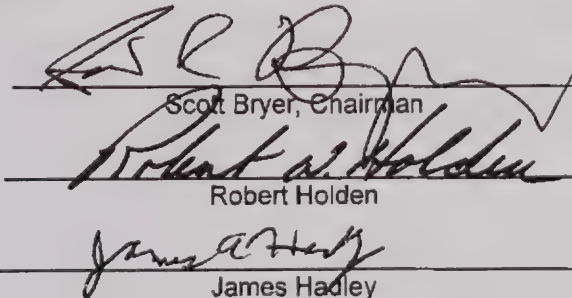 Scott Bryer, Chairman
Robert W. Holden
Robert Holden
James A Hadley
James Hadley